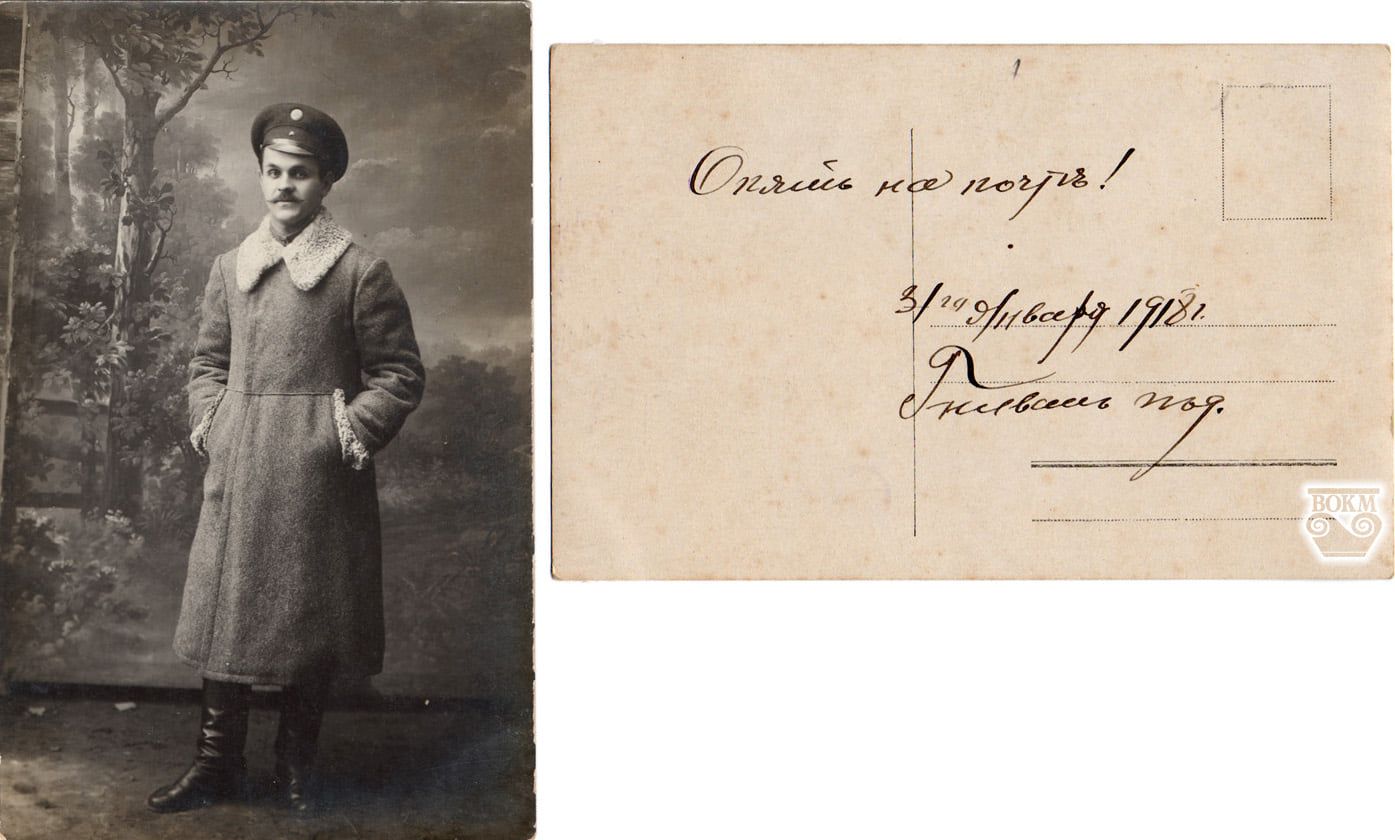 Опять на почтѣ!
3/го Января 1918 г.
Гнивань под.
ВОКМ